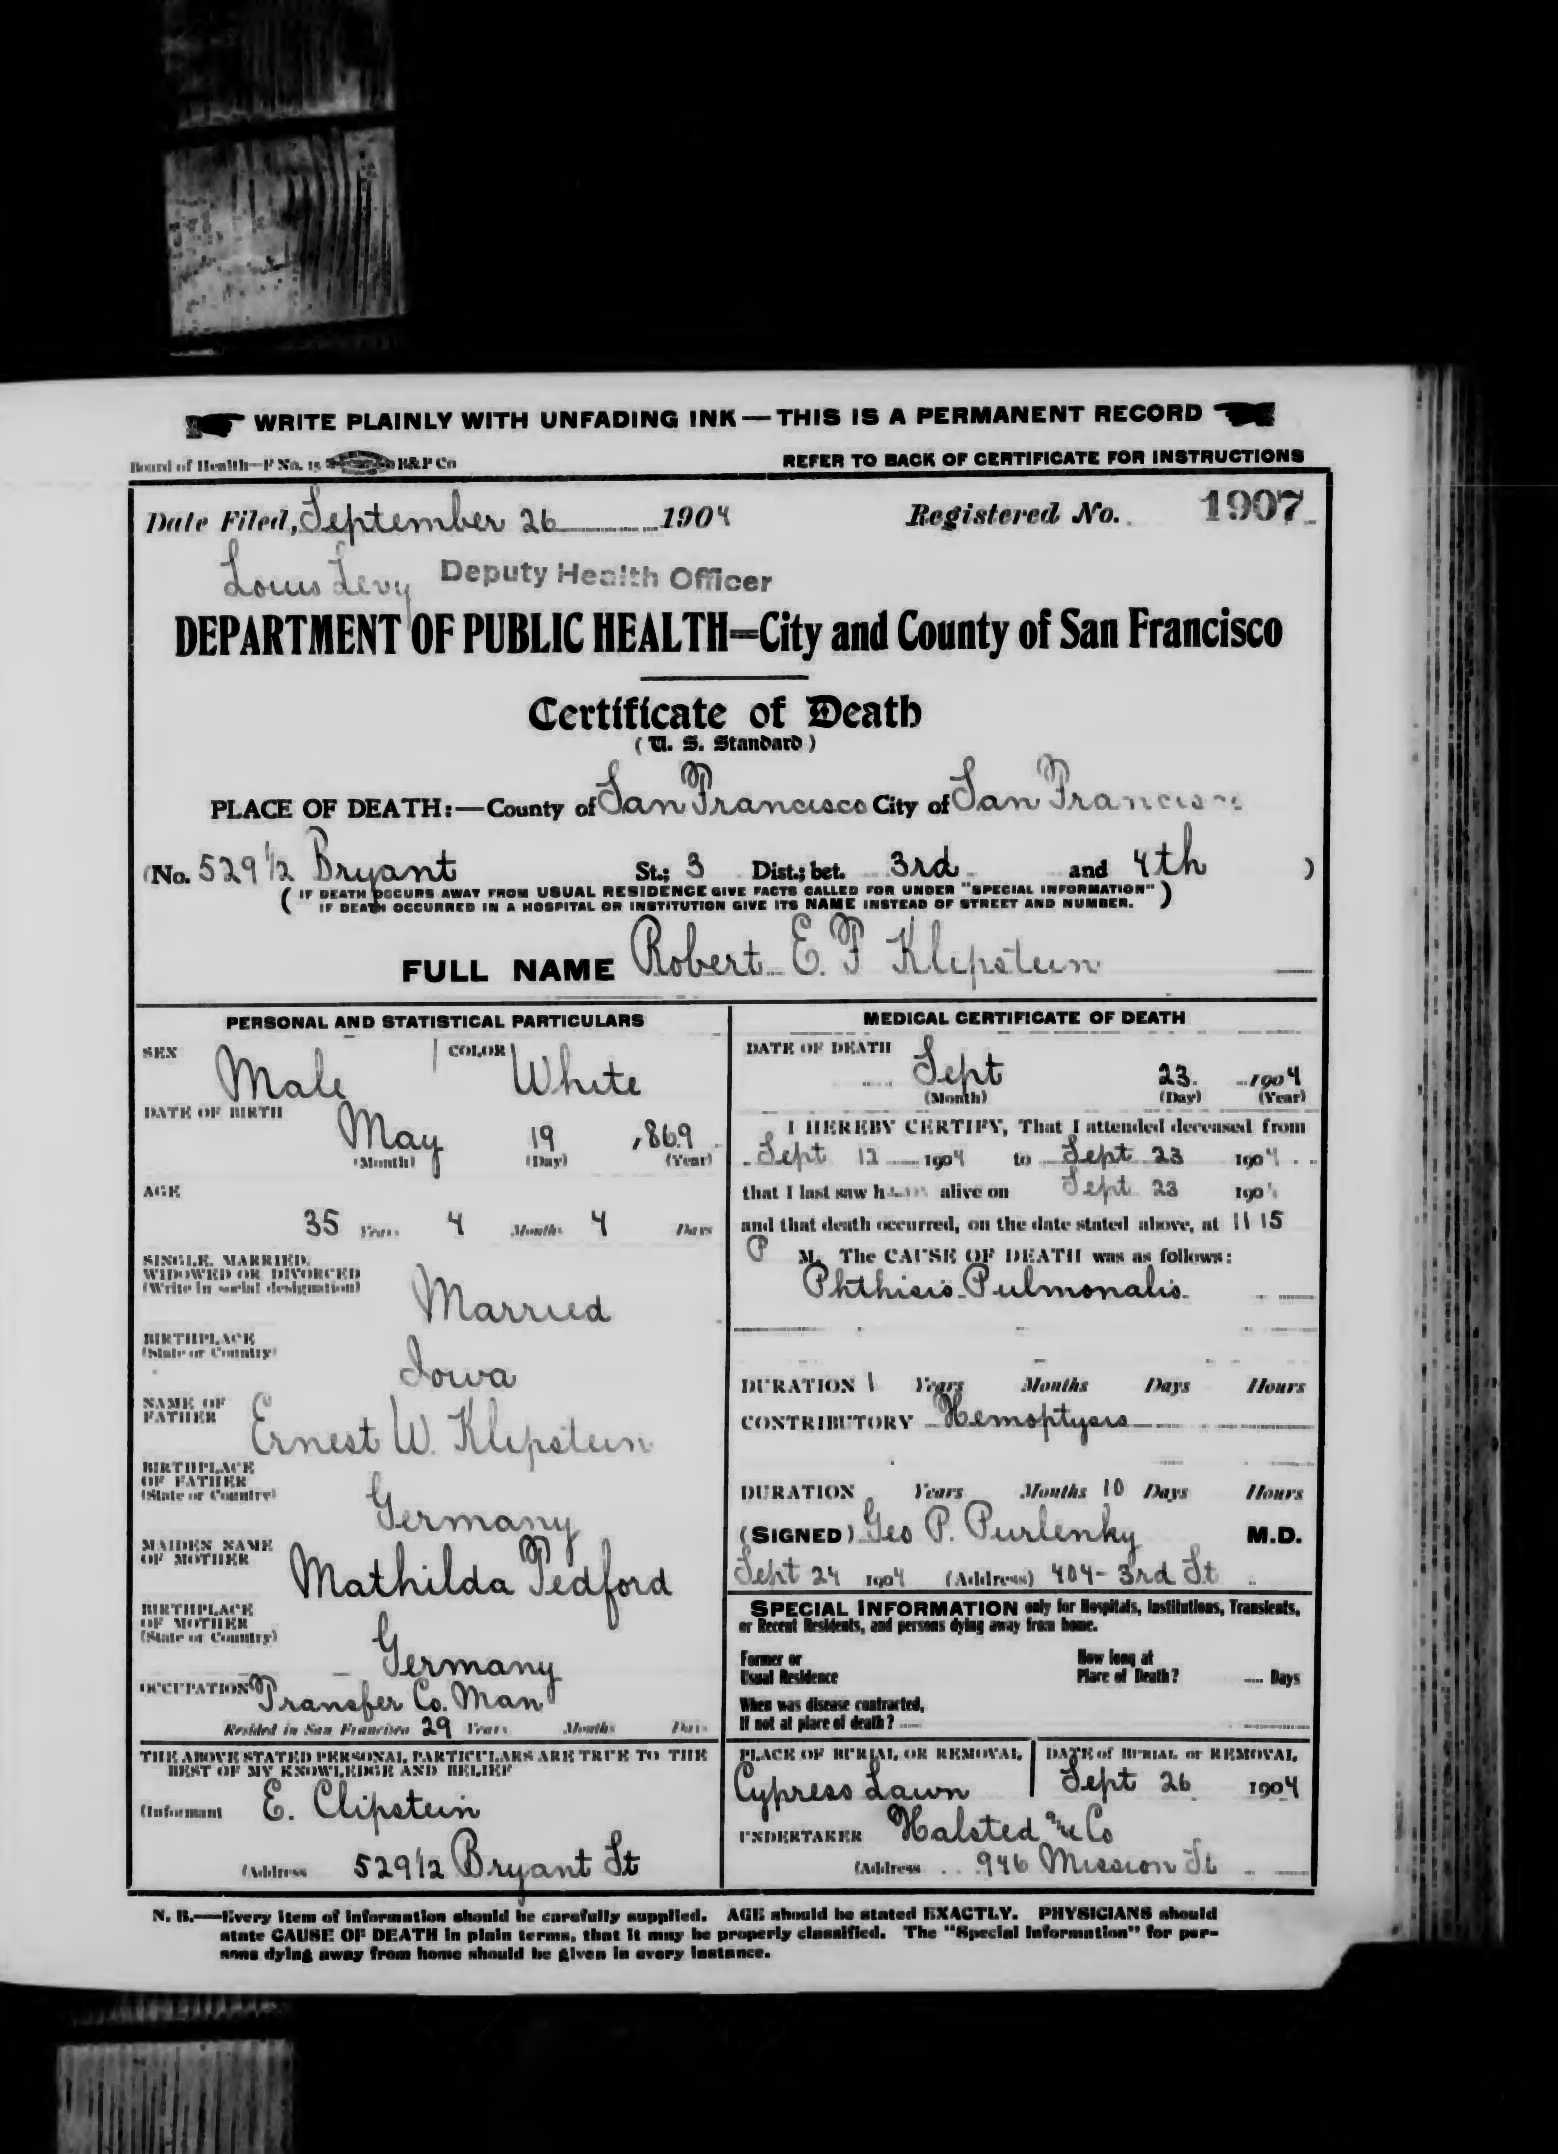 WRITE PLAINLY WITH UNFADING INK—THIS IS A PERMANENT RECORD
Board of Health—F No. 15 B&P Co
REFER TO BACK OF CERTIFICATE FOR INSTRUCTIONS
Date Filed, September 26 1904 Registered No. 1907
Louis Levy Deputy Health Officer
DEPARTMENT OF PUBLIC HEALTH=City and County of San Francisco
Certificate of Death
(U. S. Standard)
PLACE OF DEATH:—County of San Francisco City of San Francisco
(No. 529 1/2 Bryant St.; 3 Dist.; bet. 3rd and 4th )
( IF DEATH OCCURS AWAY FROM USUAL RESIDENCE GIVE FACTS CALLED FOR UNDER "SPECIAL INFORMATION" )
( IF DEATH OCCURRED IN A HOSPITAL OR INSTITUTION GIVE ITS NAME INSTEAD OF STREET AND NUMBER. )
FULL NAME Robert E. F Klipstein
PERSONAL AND STATISTICAL PARTICULARS
SEX Male COLOR White
DATE OF BIRTH
May 19 1869
(Month) (Day) (Year)
AGE
35 Years 4 Months 4 Days
SINGLE, MARRIED,
WIDOWED OR DIVORCED
(Write in social designation)
Married
BIRTHPLACE
(State or Country)
Iowa
NAME OF
FATHER
Ernest W. Klipstein
BIRTHPLACE
OF FATHER
(State or Country)
Germany
MAIDEN NAME
OF MOTHER
Mathilda Pedford
BIRTHPLACE
OF MOTHER
(State or Country)
Germany
OCCUPATION Transfer Co. Man
Resided in San Francisco 29 Years Months Days
THE ABOVE STATED PERSONAL PARTICULARS ARE TRUE TO THE
BEST OF MY KNOWLEDGE AND BELIEF
(Informant E. Clipstein
(Address 529 1/2 Bryant St
MEDICAL CERTIFICATE OF DEATH
DATE OF DEATH
Sept 23 1904
(Month) (Day) (Year)
I HEREBY CERTIFY, That I attended deceased from
Sept 12 1904 to Sept 23 1904
that I last saw him alive on Sept 23 1904
and that death occurred, on the date stated above, at 11 15
P M. The CAUSE OF DEATH was as follows:
Phthisis Pulmonalis
DURATION 1 Years Months Days Hours
CONTRIBUTORY Hemoptysis
DURATION Years Months 10 Days Hours
(SIGNED) Geo P. Purlenky M.D.
Sept 24 1904 (Address) 404-3rd St
SPECIAL INFORMATION only for Hospitals, Institutions, Transients,
or Recent Residents, and persons dying away from home.
Former or
Usual Residence
How long at
Place of Death? Days
When was disease contracted,
If not at place of death?
PLACE OF BURIAL OR REMOVAL
Cypress Lawn
DATE of BURIAL or REMOVAL
Sept 26 1904
UNDERTAKER Halsted & Co
(Address 946 Mission St
N. B.—Every item of information should be carefully supplied. AGE should be stated EXACTLY. PHYSICIANS should
state CAUSE OF DEATH in plain terms, that it may be properly classified. The "Special Information" for per-
sons dying away from home should be given in every instance.